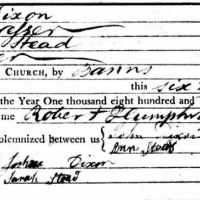 Dixon
Stead
CHURCH, by Banns
this six
the Year One thousand eight hundred and
me Robert Humphr
olemnized between us John
Ann Stead
Joshua Dixon
Sarah Stead